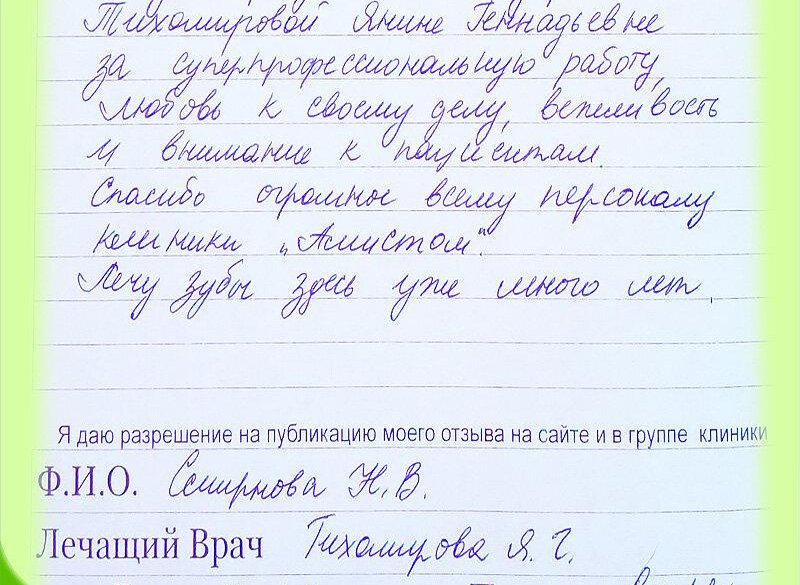 Тихомировой Янине Геннадьевне
за суперпрофессиональную работу,
любовь к своему делу, вежливость
и внимание к пациентам.
Спасибо огромное всему персоналу
клиники „Амистом".
Лечу зубы здесь уже много лет.
Я даю разрешение на публикацию моего отзыва на сайте и в группе клиники
Ф.И.О. Смирнова Н.В.
Лечащий Врач Тихомирова Я.Г.